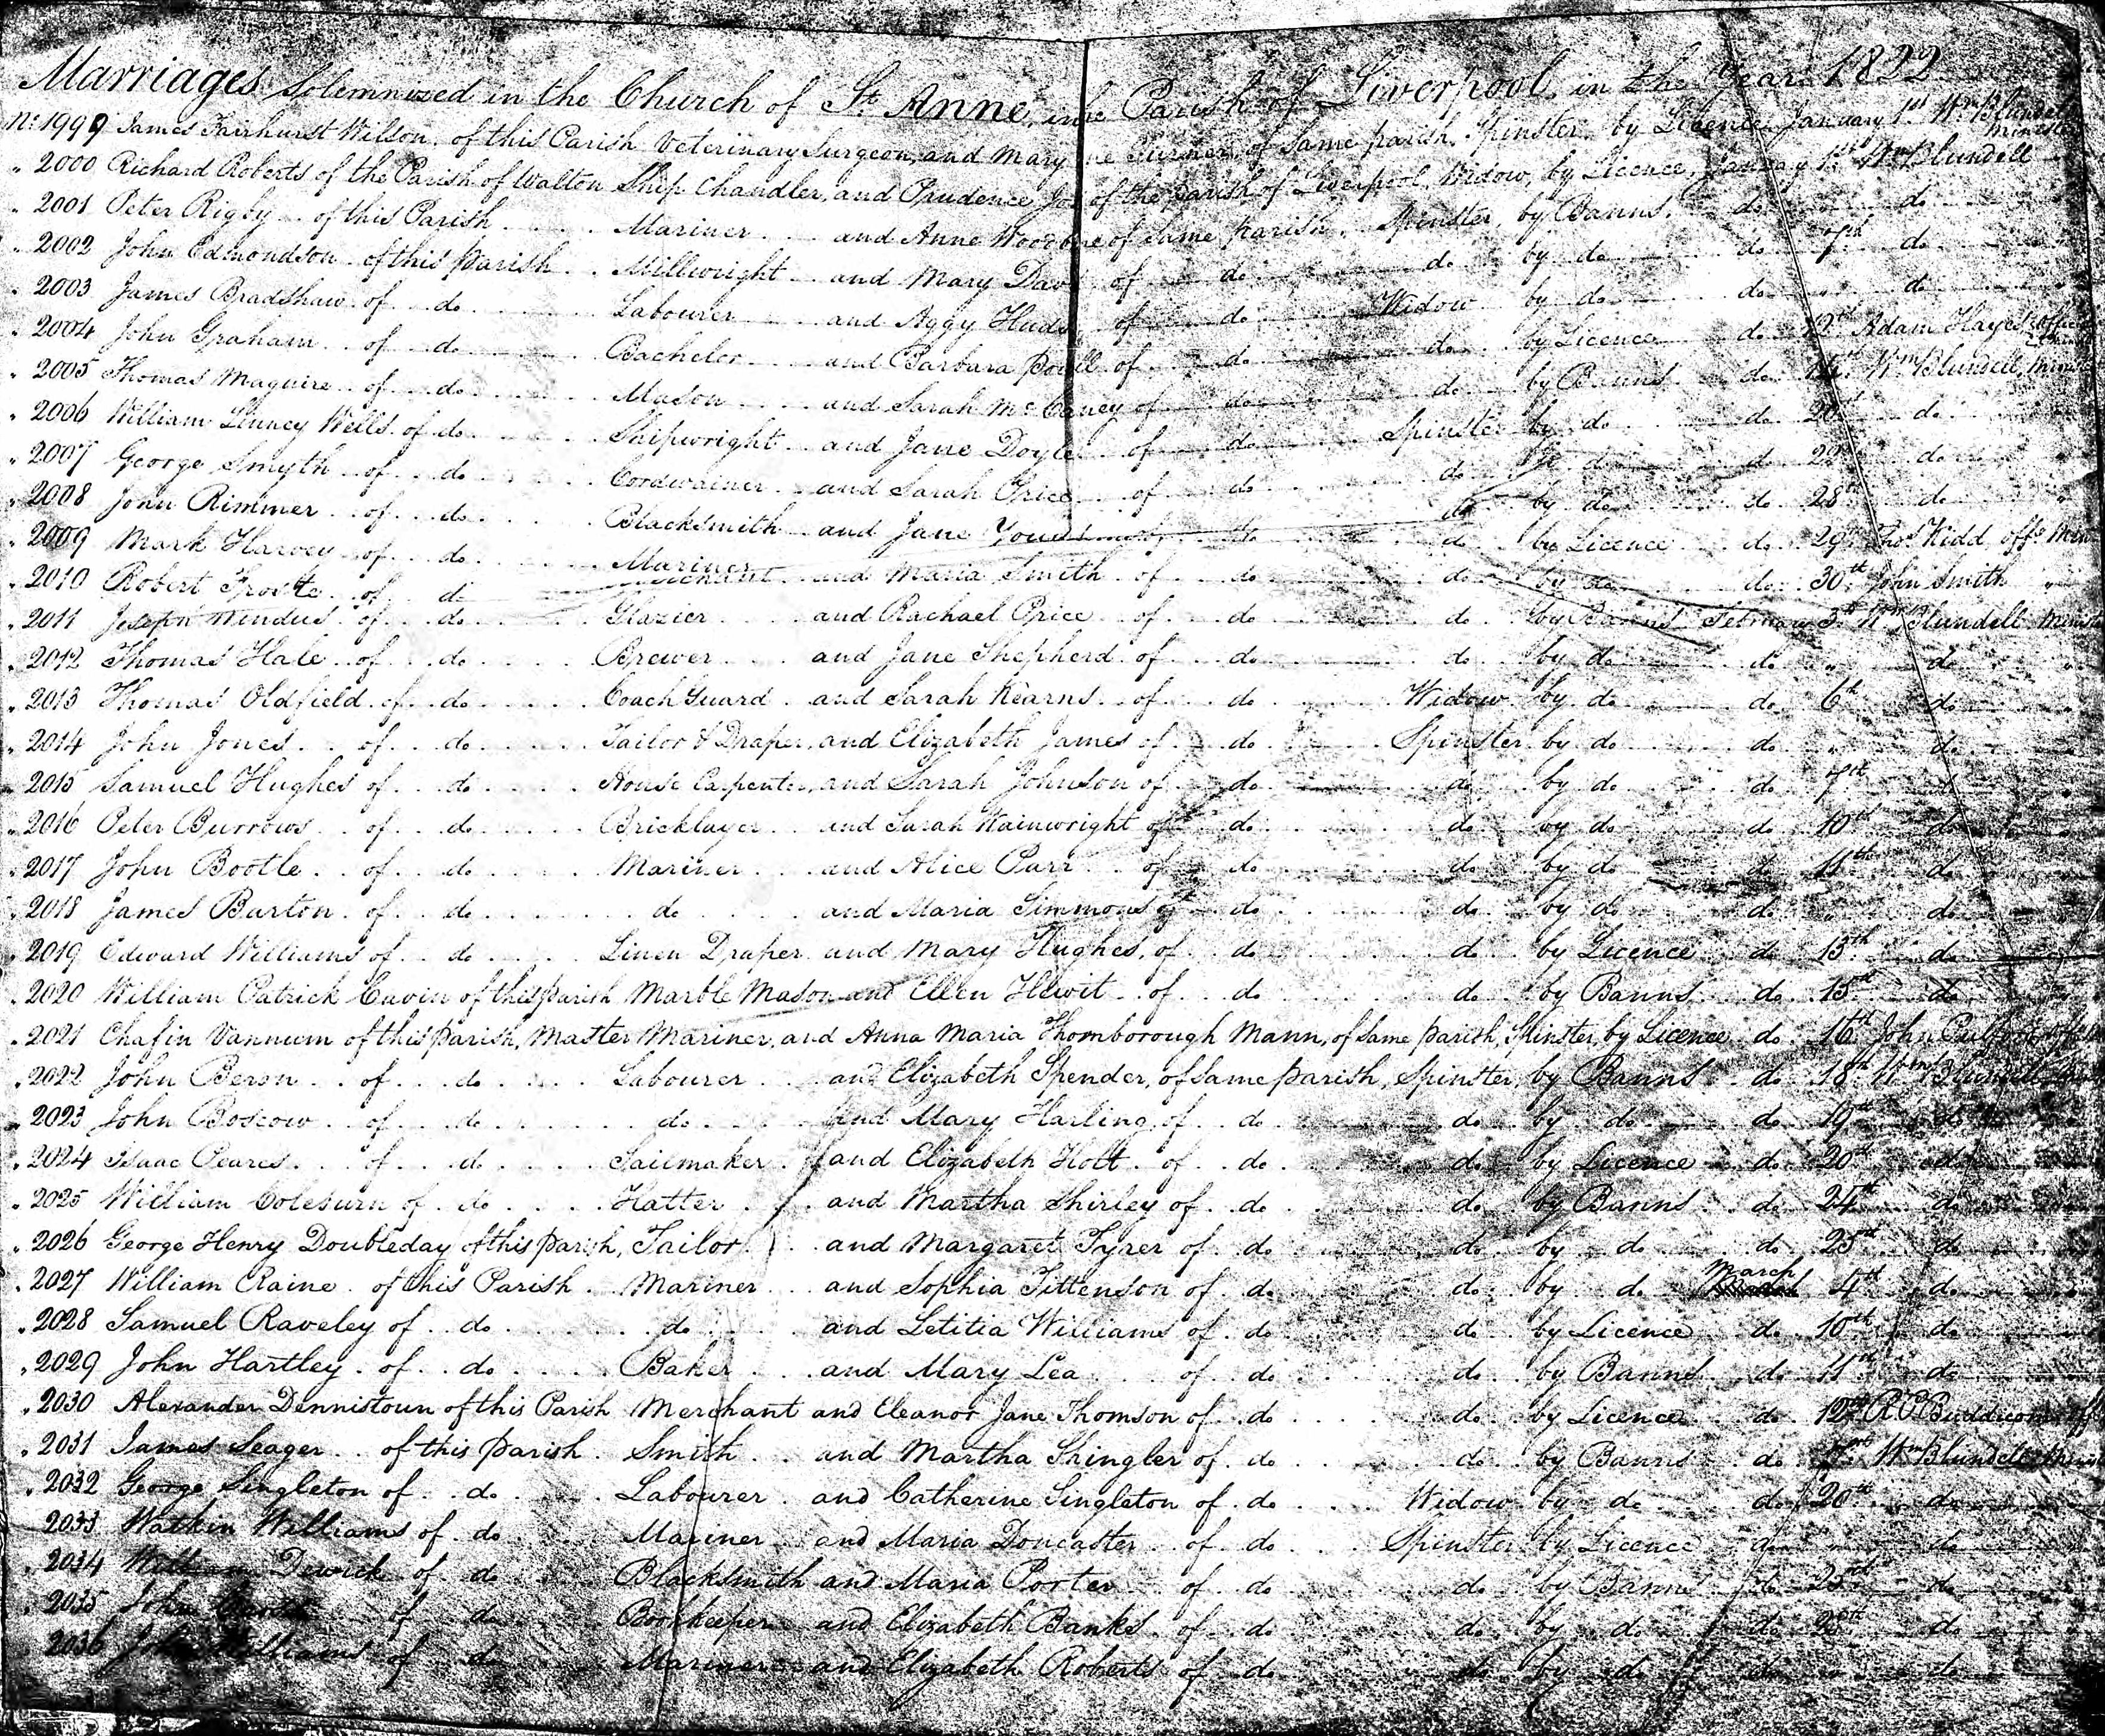 Marriages Solemnized in the Church of St Anne, in the Parish of Liverpool, in the Year 1822
No 1999 James Fairhurst Wilson, of this Parish Veterinary Surgeon, and Mary Turner, of same parish, Spinster, by Licence January 1st Wm Blundell Minister
" 2000 Richard Roberts of the Parish of Walton Ship Chandler, and Prudence of the parish of Liverpool, Widow, by Licence, January 1st Wm Blundell
" 2001 Peter Rigby of this Parish Mariner and Anne of same parish, Spinster, by Banns, do " do
" 2002 John Edmondson of this parish Millwright and Mary of do do by do do 7th do
" 2003 James Bradshaw of do Labourer and Aggy of do Widow by do do " do
" 2004 John Graham of do Bachelor and Barbara of do do by Licence do Adam Hayes
" 2005 Thomas Maguire of do Mason and Sarah of do do by Banns do Wm Blundell, Minister
" 2006 William Linney Wells of do Shipwright and Jane Doyle of do Spinster by do do 20th do
" 2007 George Smyth of do Cordwainer and Sarah Price of do do by do do do
" 2008 John Rimmer of do Blacksmith and Jane of do do by do do 28th do
" 2009 Mark Harvey of do Mariner do by Licence do 29th Thos Kidd offg Min
" 2010 Robert of do and Maria Smith of do do by do do 30th John Smith "
" 2011 Joseph Windus of do Glazier and Rachael Price of do do by Banns February 3rd Wm Blundell Minister
" 2012 Thomas Hale of do Brewer and Jane Shepherd of do do by do do " do
" 2013 Thomas Oldfield of do Coach Guard and Sarah Kearns of do Widow by do do 6th do
" 2014 John Jones of do Tailor & Draper, and Elizabeth James of do Spinster by do do " do
" 2015 Samuel Hughes of do House Carpenter, and Sarah Johnson of do do by do do 7th do
" 2016 Peter Burrows of do Bricklayer and Sarah Wainwright of do do by do do 10th do
" 2017 John Bootle of do Mariner and Alice Parr of do do by do do 11th do
" 2018 James Burton of do do and Maria Simmons of do do by do do " do
" 2019 Edward Williams of do Linen Draper and Mary Hughes, of do do by Licence do 13th do
" 2020 William Patrick Cavin of this parish Marble Mason and Ellen Hewit of do do by Banns do 15th do
" 2021 Chafin Vannum of this parish, Master Mariner, and Anna Maria Thornborough Mann, of same parish, Spinster, by Licence do 16th John
" 2022 John Beron of do Labourer and Elizabeth Spender, of same parish, Spinster, by Banns do 18th Wm Blundell
" 2023 John Boscow of do do and Mary Harling, of do do by do do 19th do
" 2024 Isaac Pearce of do Sailmaker and Elizabeth Holt of do do by Licence do 20th do
" 2025 William Coleburn of do Hatter and Martha Shirley of do do by Banns do 24th do
" 2026 George Henry Doubleday of this parish, Tailor and Margaret Tyrer of do do by do do 25th do
" 2027 William Raine of this Parish Mariner and Sophia Tittenson of do do by do March 4th do
" 2028 Samuel Raveley of do do and Letitia Williams of do do by Licence do 10th do
" 2029 John Hartley of do Baker and Mary Lea of do do by Banns do 11th do
" 2030 Alexander Dennistoun of this Parish Merchant and Eleanor Jane Thomson of do do by Licence do 12th R P Buddicom
" 2031 James Seager of this parish Smith and Martha Shingler of do do by Banns do Wm Blundell
" 2032 George Singleton of do Labourer and Catherine Singleton of do Widow by do do 20th do
2033 Watkin Williams of do Mariner and Maria Doncaster of do Spinster by Licence do " do
" 2034 William Dewick of do Blacksmith and Maria Porter of do do by Banns do do
2035 John of do Bookkeeper and Elizabeth Banks of do do by do do do
2036 John Williams of do Mariner and Elizabeth Roberts of do do by do do do